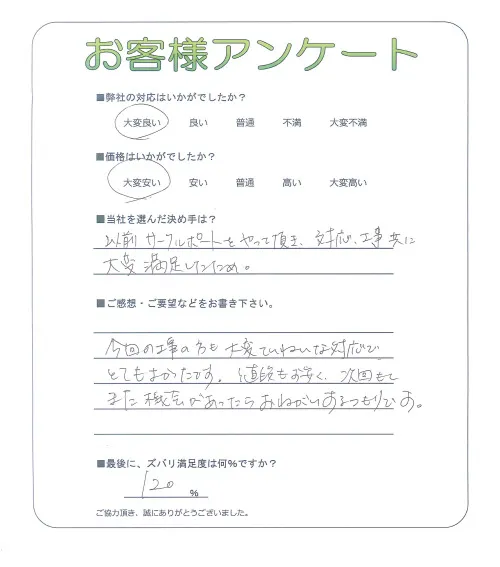 お客様アンケート
■弊社の対応はいかがでしたか？
大変良い 良い 普通 不満 大変不満
■価格はいかがでしたか？
大変安い 安い 普通 高い 大変高い
■当社を選んだ決め手は？
以前サークルポートをやって頂き、対応、工事共に
大変満足したため。
■ご感想・ご要望などをお書き下さい。
今回の工事の方も大変ていねいな対応で
とてもよかったです。値段もお安く、次回もし
また機会があったらおねがいするつもりです。
■最後に、ズバリ満足度は何%ですか？
120 %
ご協力頂き、誠にありがとうございました。